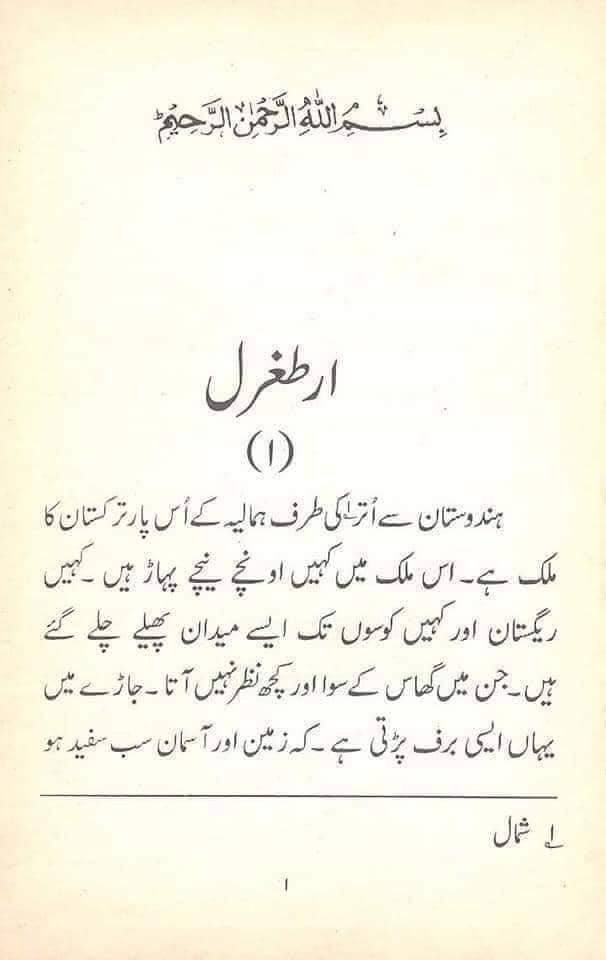 بِسْمِ اللهِ الرَّحْمٰنِ الرَّحِيْمِ ط
ارطغرل
(۱)
ہندوستان سے اُتر۱؎ کی طرف ہمالیہ کے اُس پار ترکستان کا
ملک ہے۔ اس ملک میں کہیں اونچے نیچے پہاڑ ہیں۔ کہیں
ریگستان اور کہیں کوسوں تک ایسے میدان پھیلے چلے گئے
ہیں۔ جن میں گھاس کے سوا اور کچھ نظر نہیں آتا۔ جاڑے میں
یہاں ایسی برف پڑتی ہے۔ کہ زمین اور آسمان سب سفید ہو
۱؎ شمال
۱